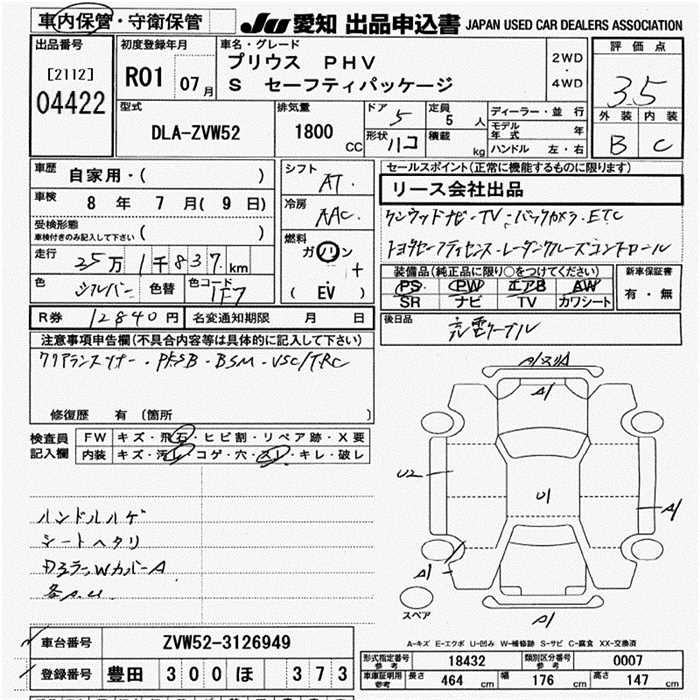 車内保管・守衛保管
JU 愛知 出品申込書 JAPAN USED CAR DEALERS ASSOCIATION
出品番号
[2112]
04422
初度登録年月
R01 07月
車名・グレード
プリウス PHV
S セーフティパッケージ
2WD
・
4WD
評価点
3.5
外装 内装
B C
型式
DLA-ZVW52
排気量
1800 CC
ドア 5
形状 ハコ
定員 5 人
積載 kg
ディーラー・並行
モデル年式 年
ハンドル 左・右
車歴 自家用・( )
車検 8 年 7 月( 9 日)
受検形態
車検付きのみ記入して下さい ( )
走行 25万1千837km
色 シルバー 色替 色コード 1F7
シフト AT
冷房 AAC
燃料
ガソリン
+
( EV )
セールスポイント(正常に機能するものに限ります)
リース会社出品
ケンウッドナビ・TV・バックカメラ・ETC
トヨタセーフティセンス・レーダークルーズコントロール
装備品(純正品に限り○をつけてください)
PS PW エアB AW
SR ナビ TV カワシート
新車保証書
有・無
R券 12840円 名変通知期限 月 日
後日品 充電ケーブル
注意事項申告欄(不具合内容等は具体的に記入して下さい)
クリアランスソナー・PKSB・BSM・VSC/TRC
修復歴 有 (箇所 )
検査員記入欄
FW キズ・飛石・ヒビ割・リペア跡・X要
内装 キズ・汚れ・コゲ・穴・スレ・キレ・破レ
ハンドルハゲ
シートヘタリ
ドアミラーWカバーA
各A.U
A1
U2
U1
A1
A1
A1
スペア
A-キズ E-エクボ U-凹み W-補修跡 S-サビ C-腐食 XX-交換済
車台番号 ZVW52-3126949
登録番号 豊田 300 ほ 373
形式指定番号 参考 18432 類別区分番号 参考 0007
車庫証明用 参考 長さ 464 cm 幅 176 cm 高さ 147 cm